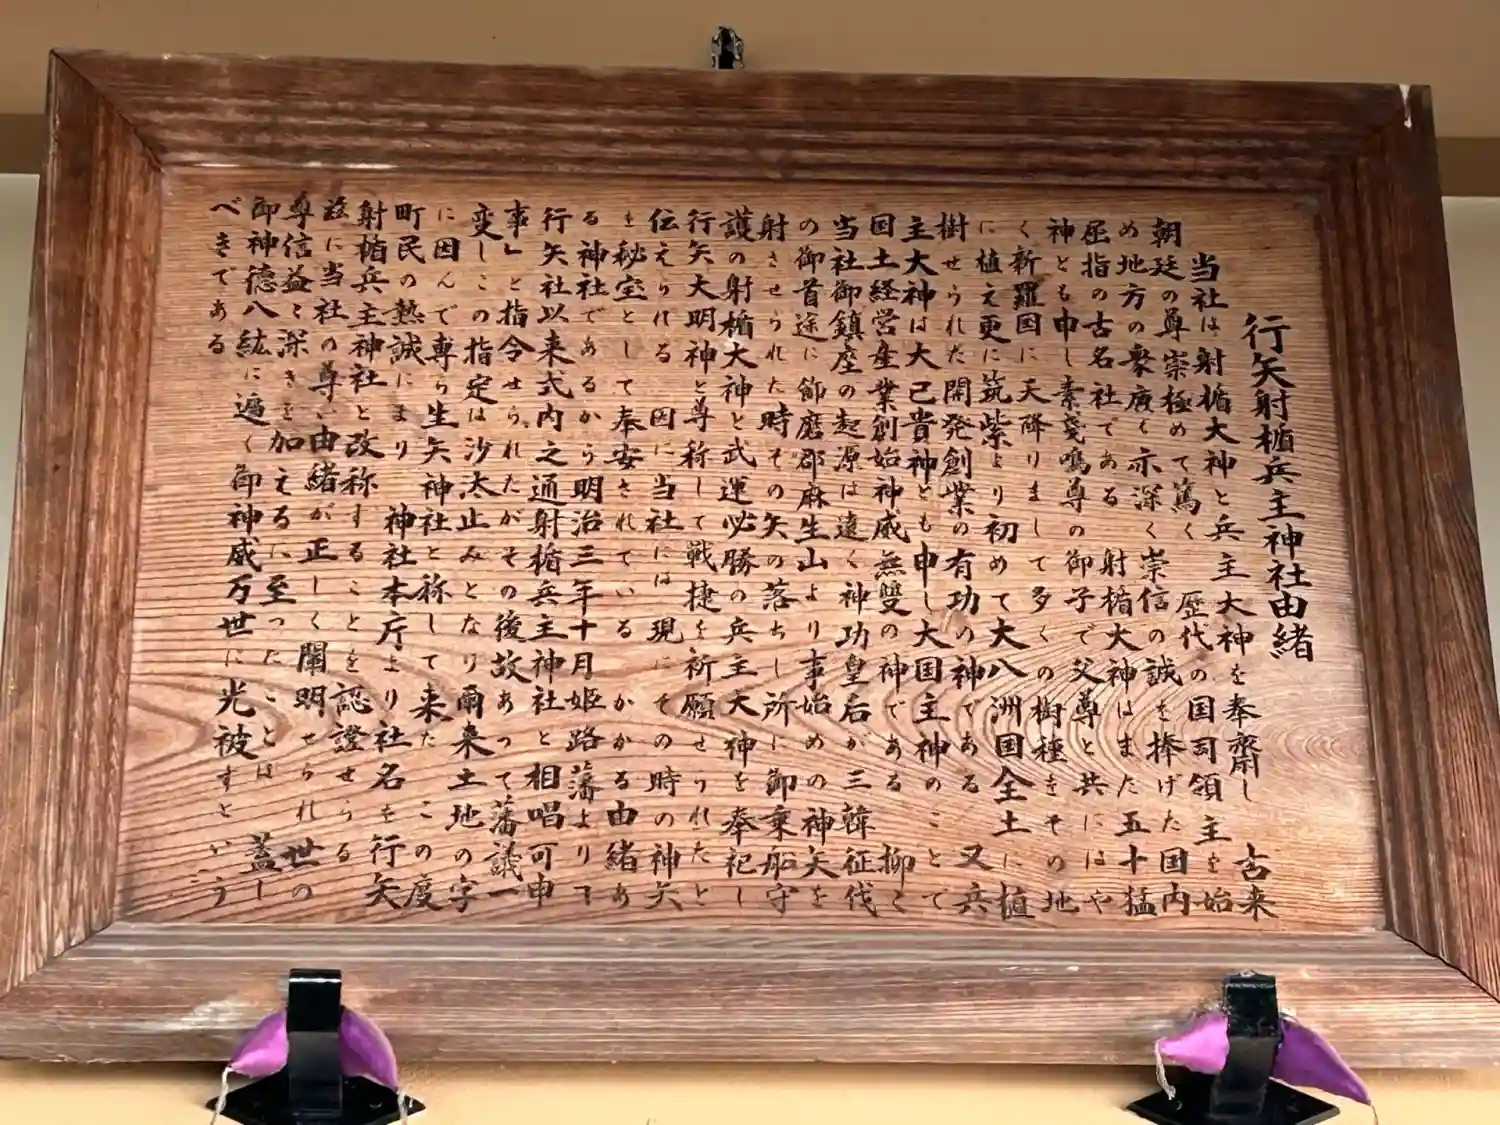 行矢射楯兵主神社由緒
当社は射楯大神と兵主大神を奉齋し 古来
朝廷の尊崇極めて篤く 歴代の国司領主を始
め地方の衆庶も亦深く崇信の誠を捧げた国内
屈指の古名社である 射楯大神はまた五十猛
神とも申し素戔嗚尊の御子で父尊と共にはや
く新羅国に天降りまして多くの樹種をその地
に植え更に筑紫より初めて大八洲国全土に植
樹せられた開発創業の有功の神である 又兵
主大神は大己貴神とも申し大国主神のことで
国土経営産業創始神威無雙の神である 抑〻
当社御鎮座の起源は遠く神功皇后が三韓征伐
の御首途に飾磨郡麻生山より事始めの神矢を
射させられた時その矢の落ちし所に御乗船守
護の射楯大神と武運必勝の兵主大神を奉祀し
行矢大明神と尊称して戦捷を祈願せられたと
伝えられる 因に当社には現にその時の神矢
を秘宝として奉安されている かかる由緒あ
る神社であるから明治三年十月姫路藩より「
行矢社以来式内之通射楯兵主神社と相唱可申
事」と指令せられたがその後故あって藩議一
変しこの指定は沙汰止みとなり爾来土地の字
に因んで専ら生矢神社と称して来た この度
町民の熱誠により 神社本庁より社名を行矢
射楯兵主神社と改称することを認證せらる
茲に当社の尊い由緒が正しく闡明せられ世の
尊信益〻深きを加えるに至ったことは 蓋し
御神徳八紘に遍く御神威万世に光被すという
べきである